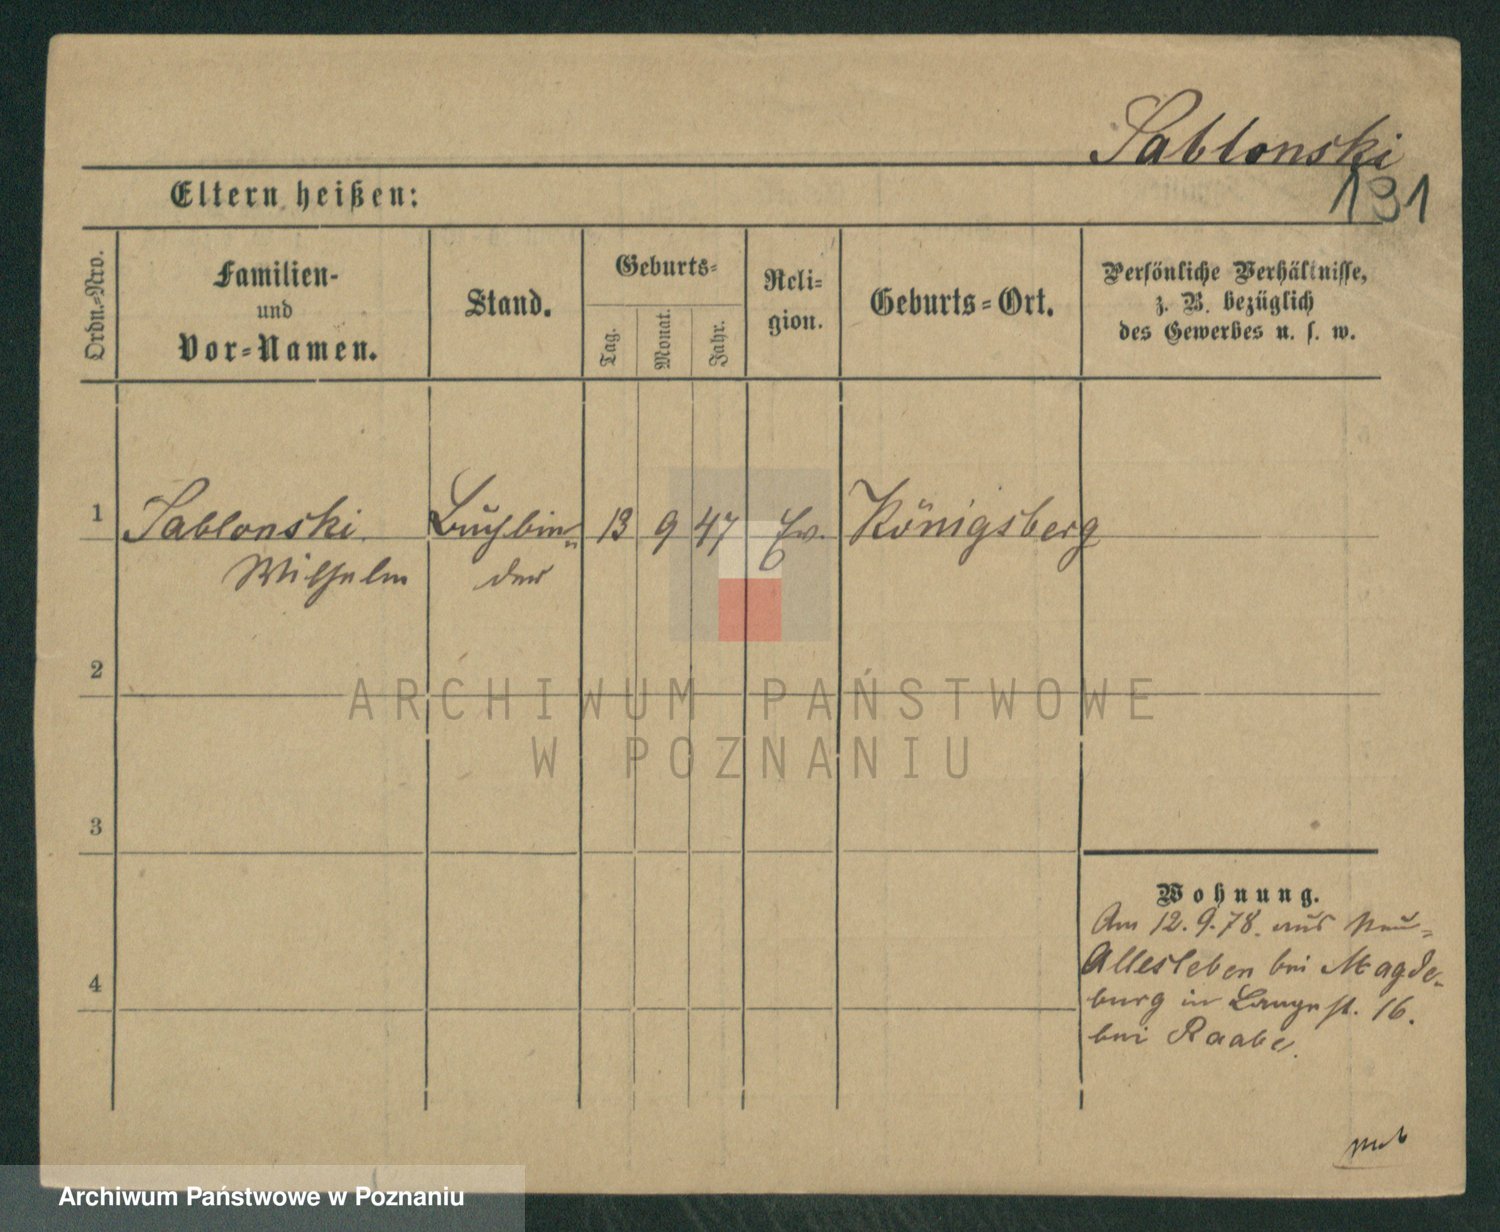 Jablonski
131
Eltern heißen:
Ordn.-Nro.
Familien-
und
Vor-Namen.
Stand.
Geburts-
Tag.
Monat.
Jahr.
Reli-
gion.
Geburts-Ort.
Persönliche Verhältnisse,
z. B. bezüglich
des Gewerbes u. s. w.
1
Jablonski
Wilhelm
Buchbin-
der
13
9
47
Ev.
Königsberg
2
ARCHIWUM PAŃSTWOWE
W POZNANIU
3
Wohnung.
Am 12.9.78. aus Neu-
Allesleben bei Magde-
burg in Langest. 16.
bei Raabe.
4
Archiwum Państwowe w Poznaniu